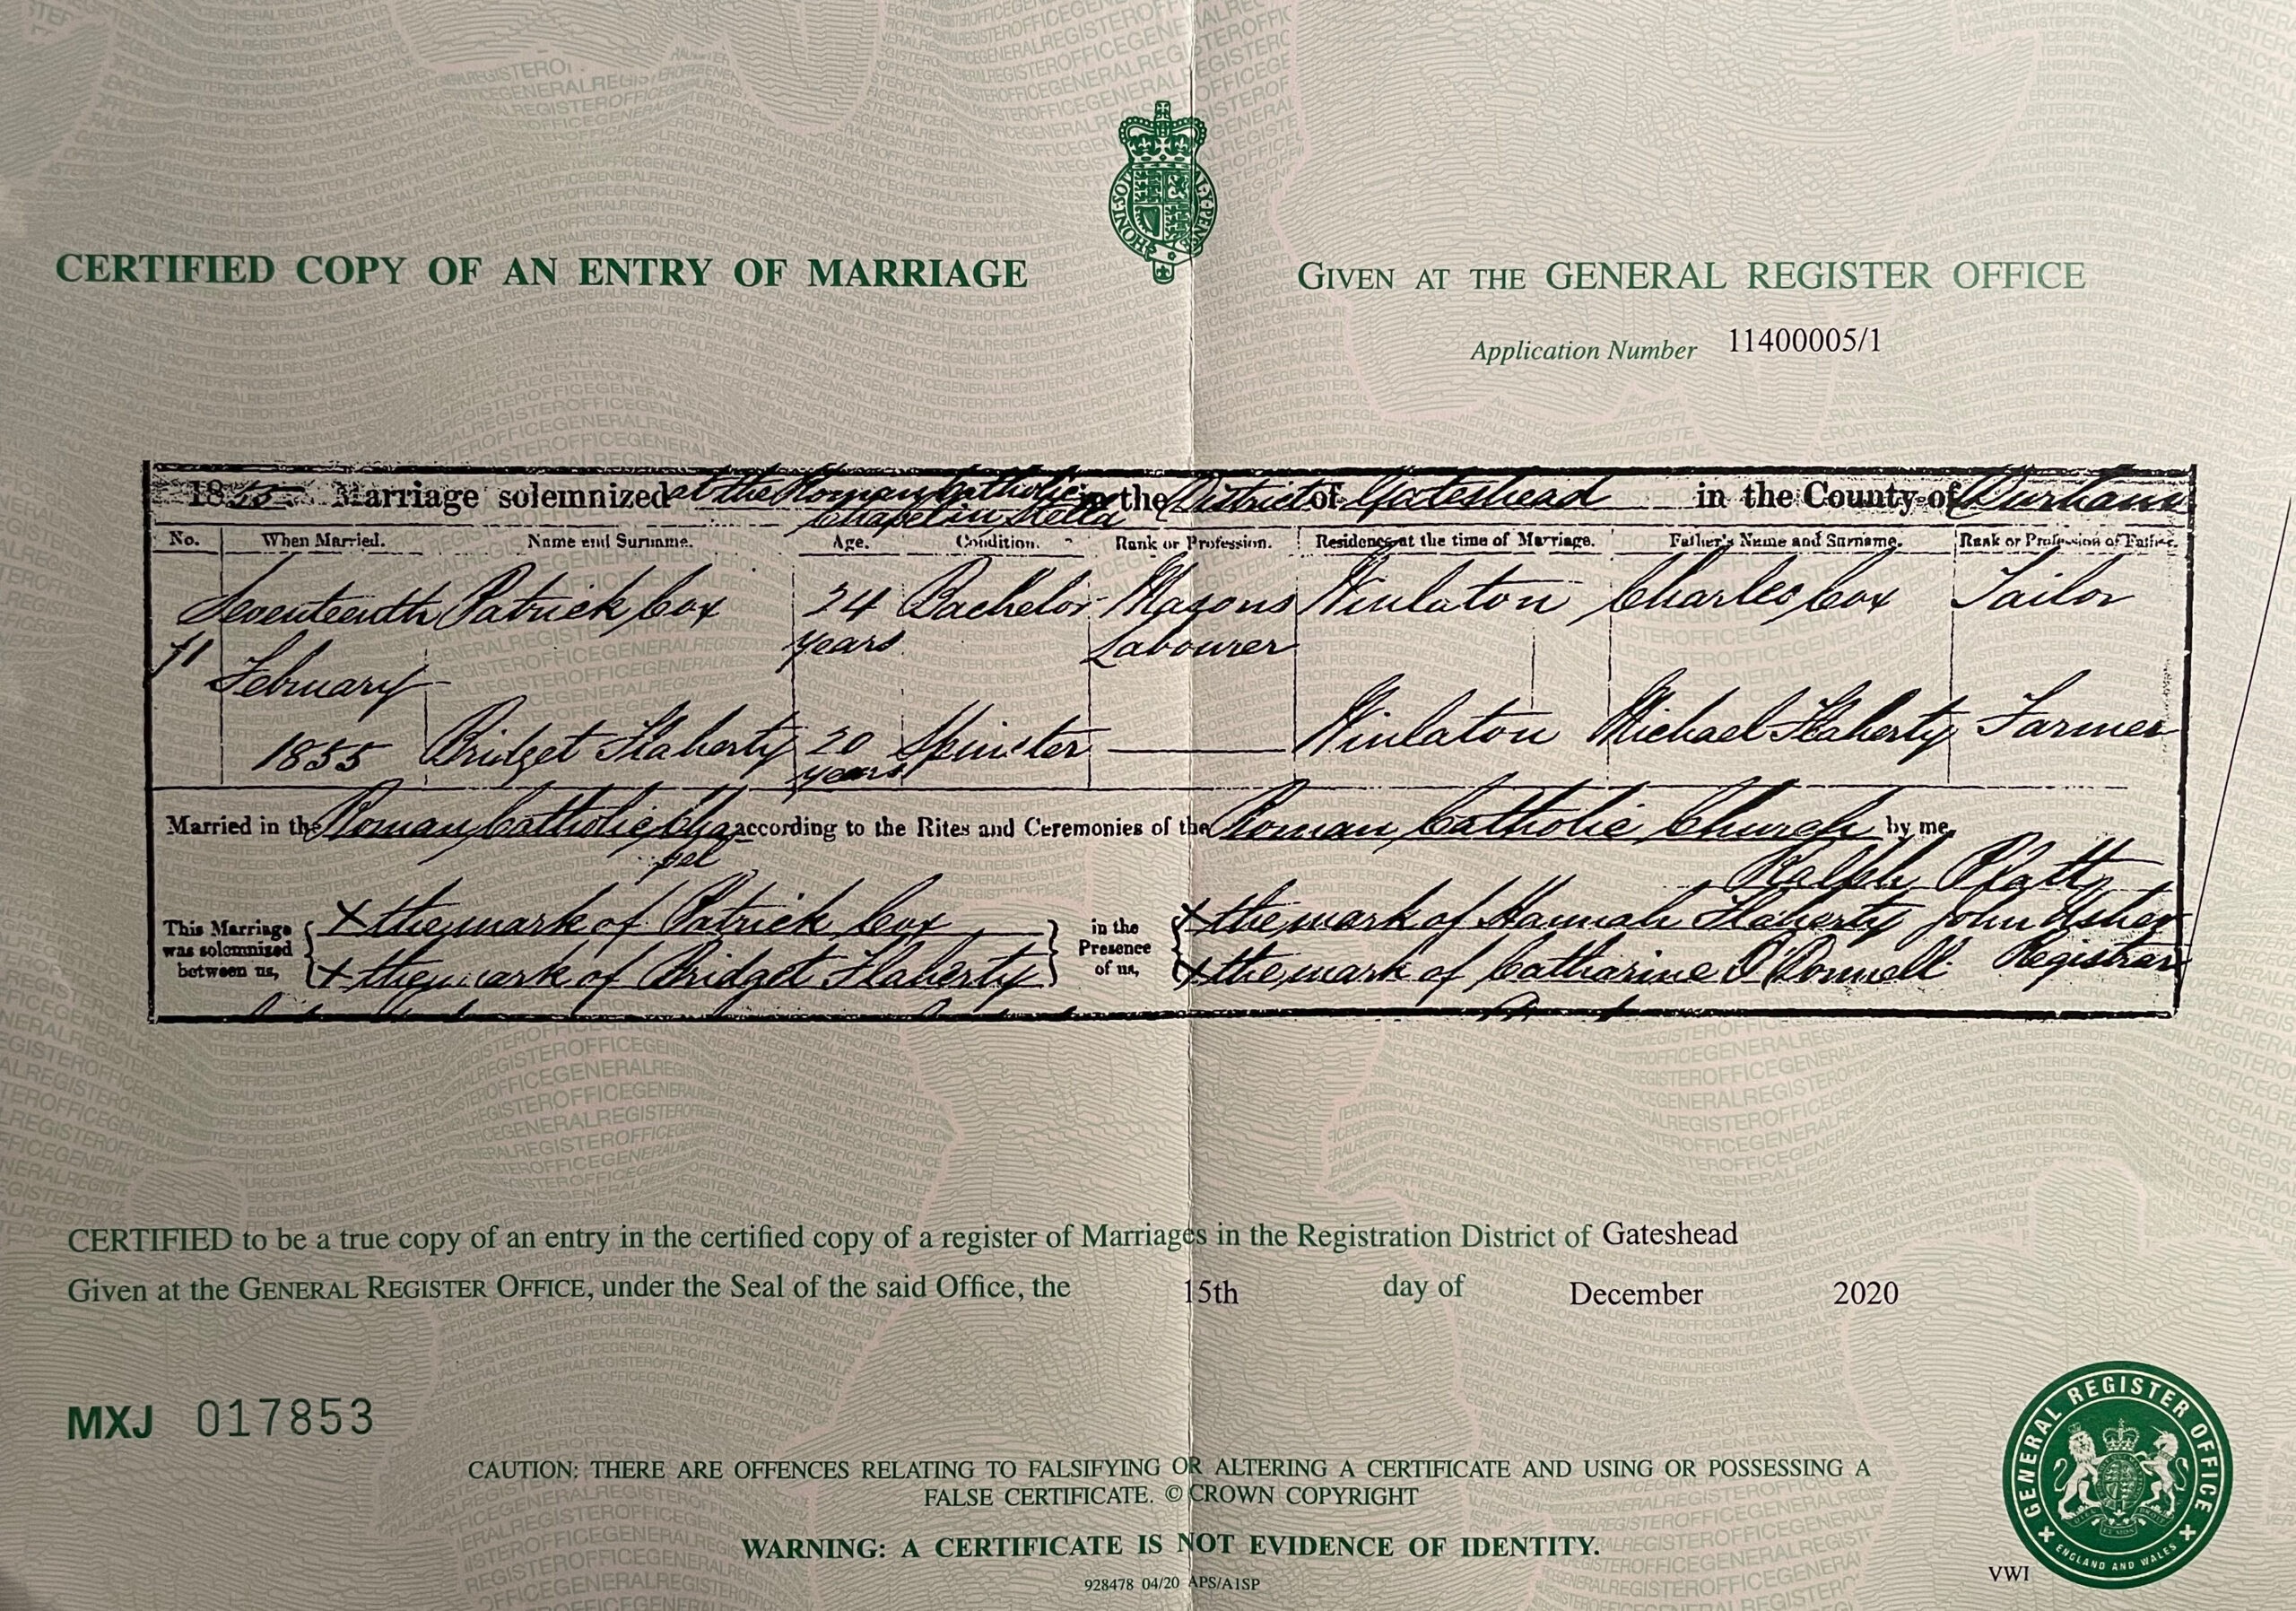 CERTIFIED COPY OF AN ENTRY OF MARRIAGE
GIVEN AT THE GENERAL REGISTER OFFICE
Application Number 11400005/1
1855. Marriage solemnized at the Roman Catholic Chapel in Stella in the District of Gateshead in the County of Durham
No. When Married. Name and Surname. Age. Condition. Rank or Profession. Residence at the time of Marriage. Father's Name and Surname. Rank or Profession of Father.
Seventeenth Patrick Cox 24 years Bachelor Masons Labourer Winlaton Charles Cox Tailor
71
February
1855 Bridget Flaherty 20 years Spinster Winlaton Michael Flaherty Farmer
Married in the Roman Catholic Chapel according to the Rites and Ceremonies of the Roman Catholic Church by me,
Ralph Platt
This Marriage was solemnized between us,
X the mark of Patrick Cox
X the mark of Bridget Flaherty
in the Presence of us,
X the mark of Hannah Flaherty
X the mark of Catharine O'Donnell
John Usher
Registrar
CERTIFIED to be a true copy of an entry in the certified copy of a register of Marriages in the Registration District of Gateshead
Given at the GENERAL REGISTER OFFICE, under the Seal of the said Office, the 15th day of December 2020
MXJ 017853
CAUTION: THERE ARE OFFENCES RELATING TO FALSIFYING OR ALTERING A CERTIFICATE AND USING OR POSSESSING A
FALSE CERTIFICATE. © CROWN COPYRIGHT
WARNING: A CERTIFICATE IS NOT EVIDENCE OF IDENTITY.
928478 04/20 APS/A1SP
VWI
GENERAL REGISTER OFFICE
ENGLAND AND WALES